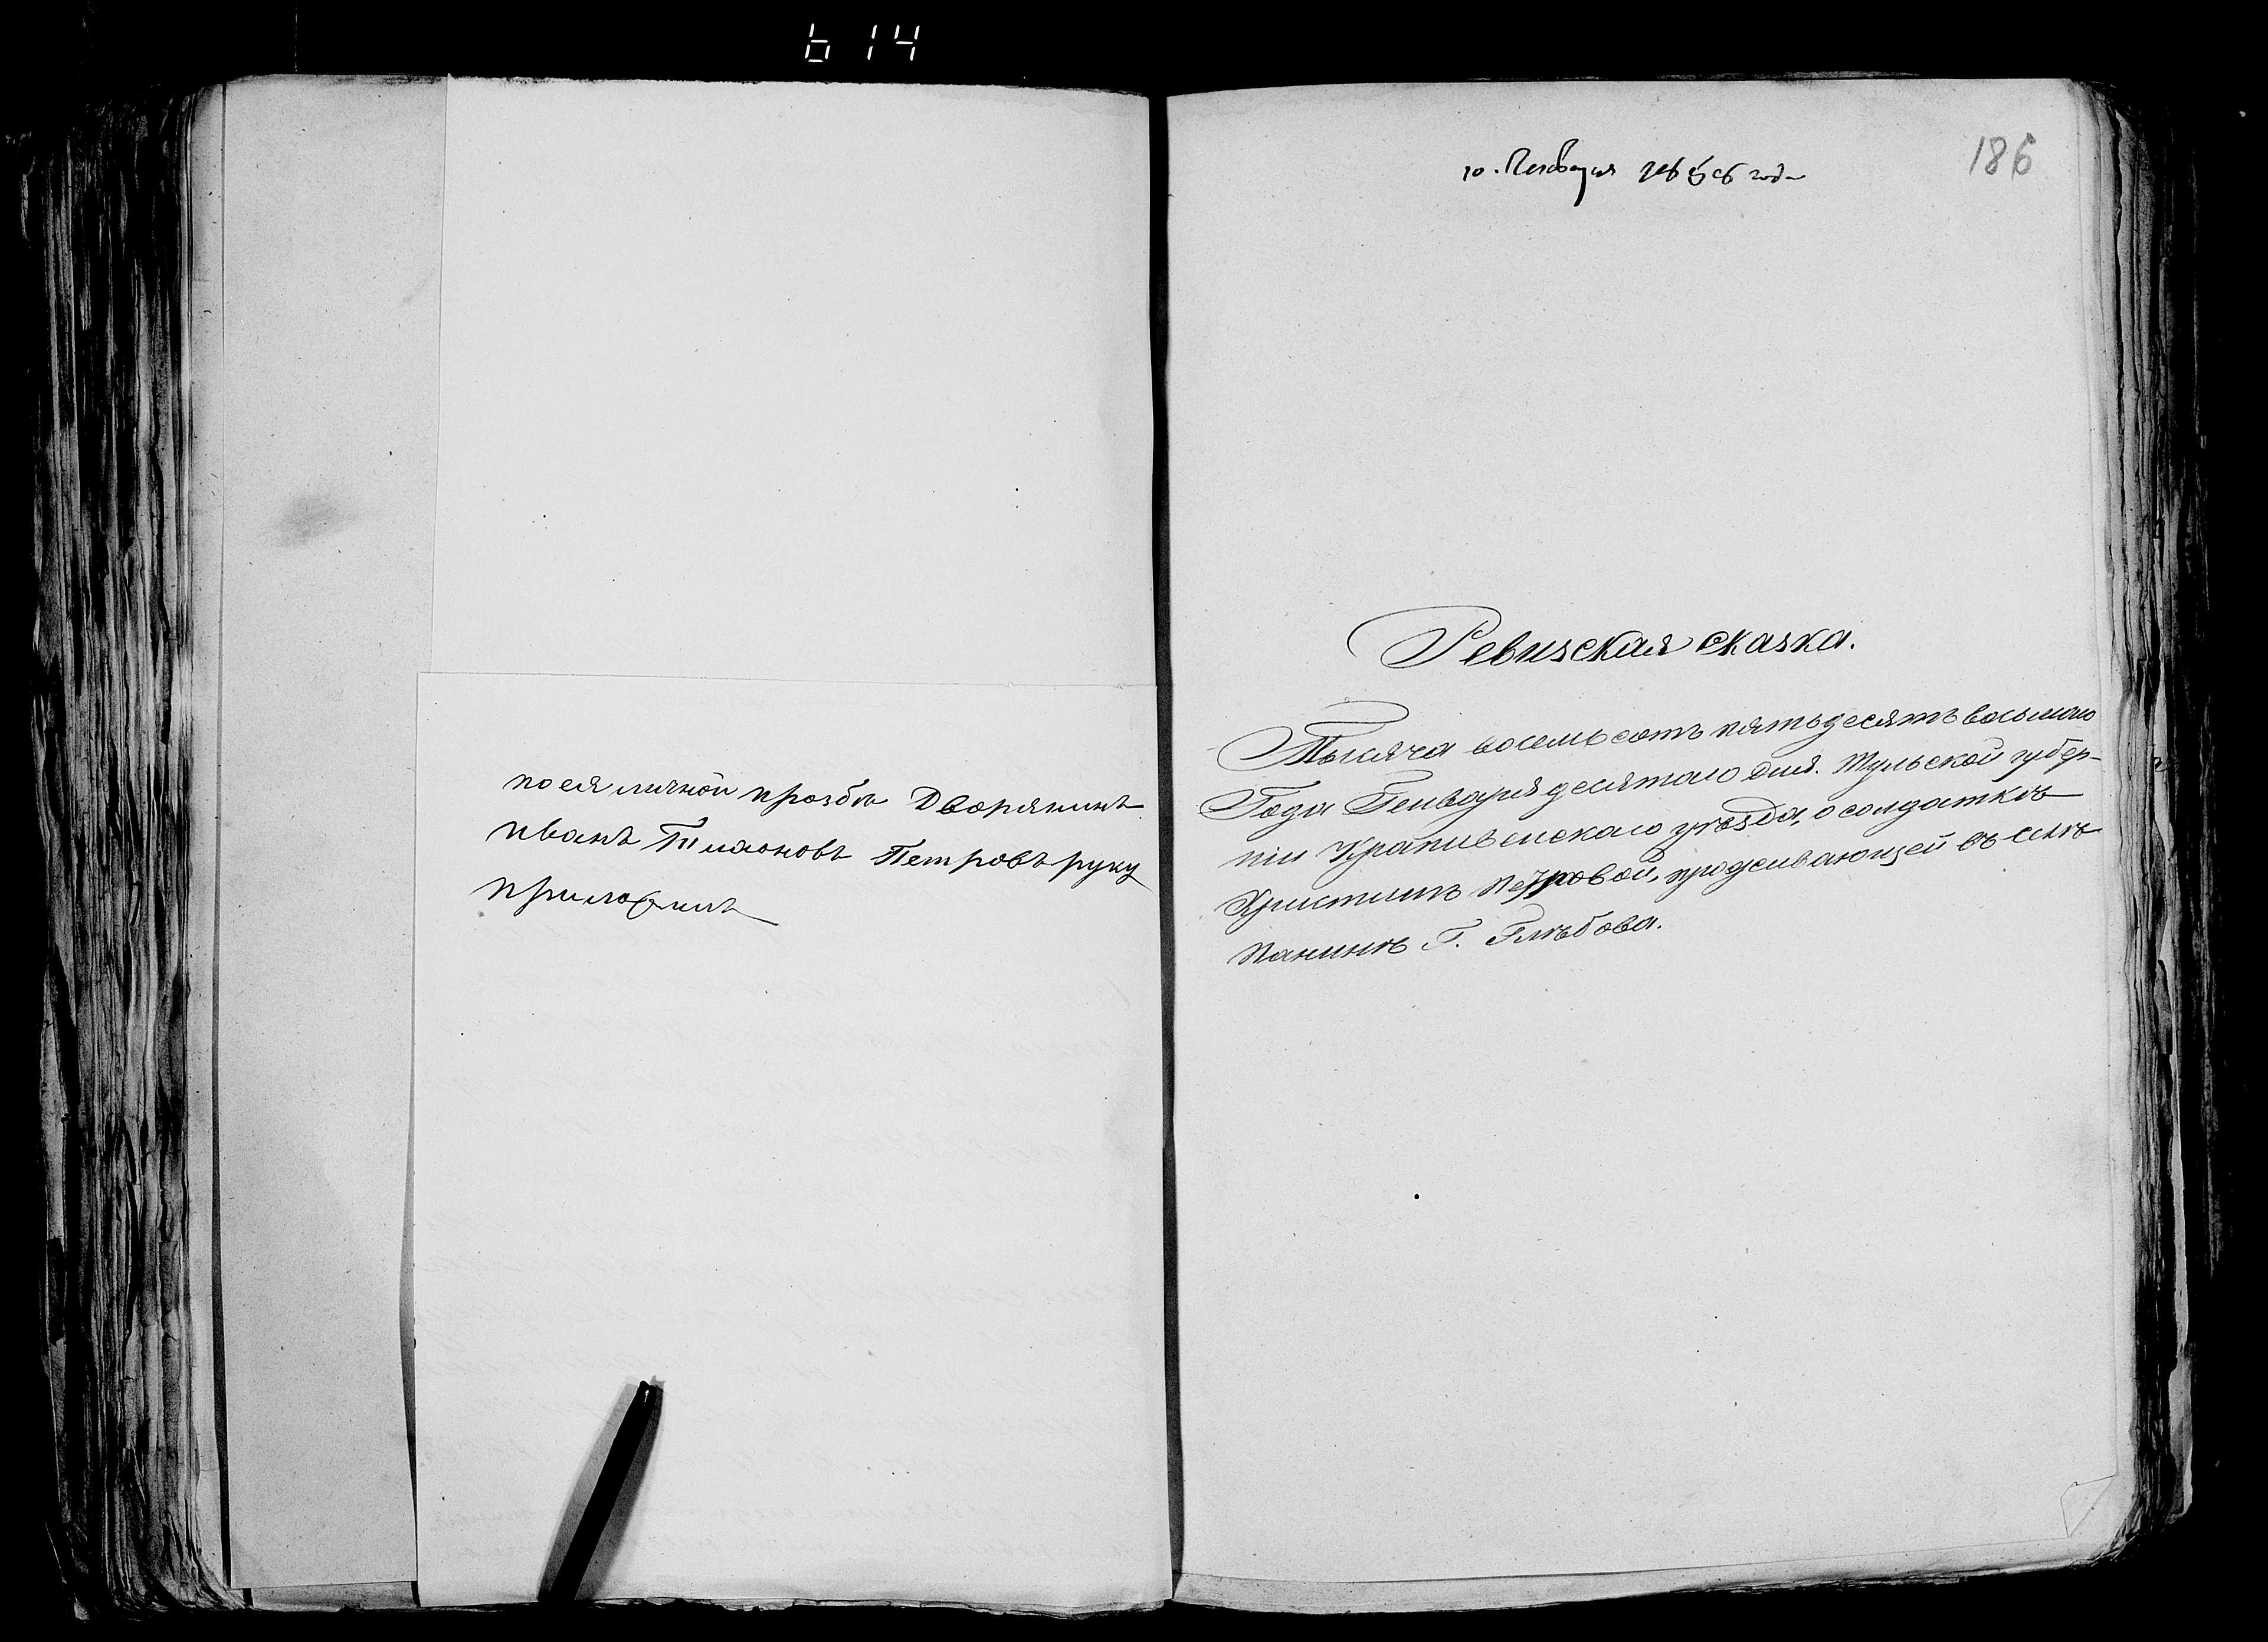 614
по ея личной прозбѣ Дворянинъ
Иванъ Петровъ руку
приложилъ
186
10. Генваря 1858 года
Ревизская сказка.
Тысяча восемьсотъ пятьдесятъ восьмаго
Года Генваря десятаго дня. Тульской губер-
ніи Крапивенскаго уѣзда, о солдаткѣ
Христинѣ Петровой, проживающей въ селѣ
Панинѣ Г. Глѣбова.